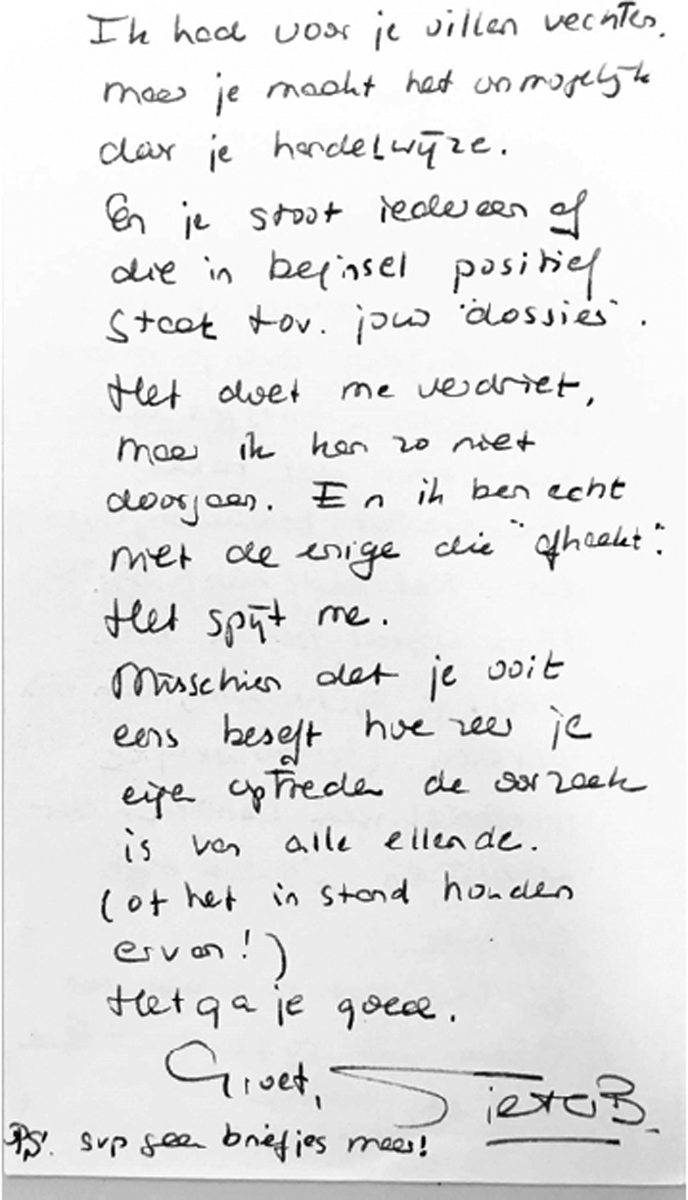 Ik had voor je willen vechten.
maar je maakt het onmogelijk
door je handelwijze.
En je stoot iedereen af
die in beginsel positief
staat tov. jouw "dossier".
Het doet me verdriet,
maar ik kan zo niet
doorgaan. En ik ben echt
niet de enige die "afhaakt".
Het spijt me.
Misschien dat je ooit
eens beseft hoe zeer je
eigen optreden de oorzaak
is van alle ellende.
(of het in stand houden
ervan!)
Het ga je goed.
Groet,
PS. svp geen briefjes meer!